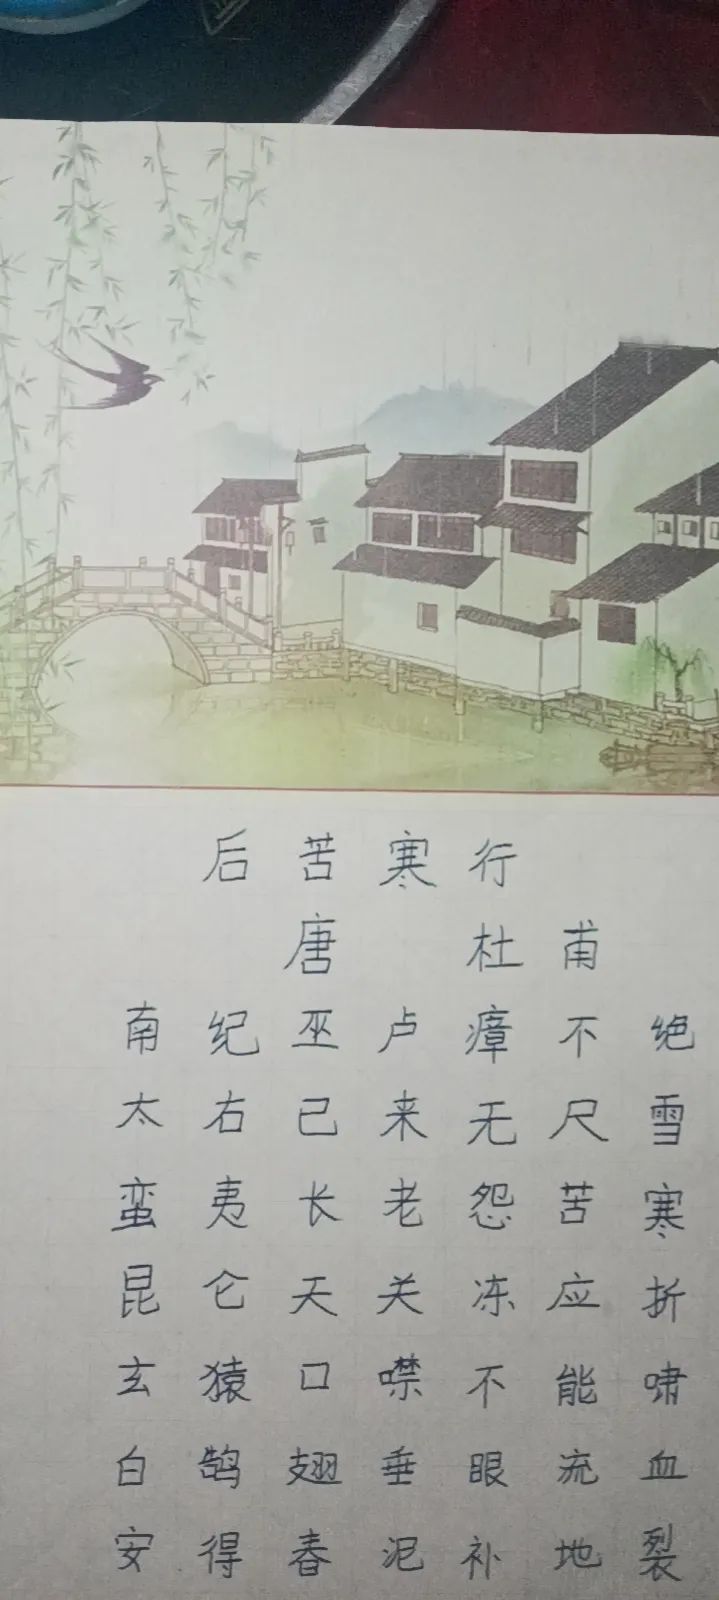 后苦寒行
唐 杜甫
南纪巫卢瘴不绝
太右己来无尺雪
蛮夷长老怨苦寒
昆仑天关冻应折
玄猿口噤不能啸
白鹄翅垂眼流血
安得春泥补地裂